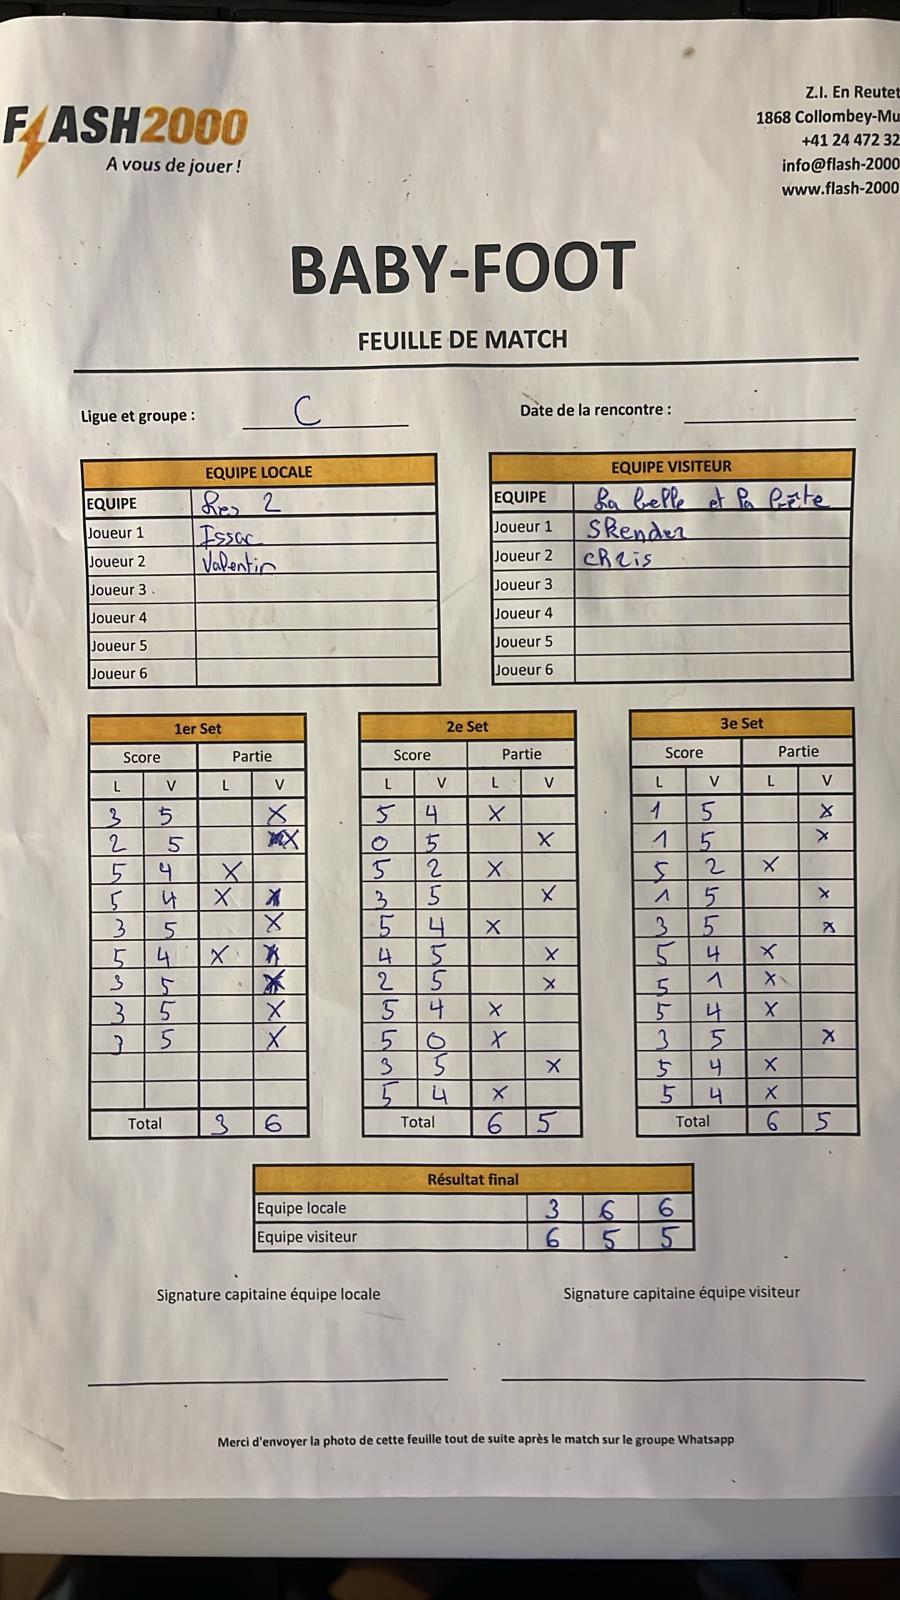 FLASH2000
A vous de jouer !
Z.I. En Reutet
1868 Collombey-Mu
+41 24 472 32
info@flash-2000
www.flash-2000
BABY-FOOT
FEUILLE DE MATCH
Ligue et groupe : C
Date de la rencontre :
EQUIPE LOCALE
EQUIPE Les 2
Joueur 1 Issac
Joueur 2 Valentin
Joueur 3
Joueur 4
Joueur 5
Joueur 6
EQUIPE VISITEUR
EQUIPE La belle et la bête
Joueur 1 Skender
Joueur 2 chris
Joueur 3
Joueur 4
Joueur 5
Joueur 6
1er Set
Score Partie
L V L V
3 5 X
2 5 X
5 4 X
5 4 X
3 5 X
5 4 X
3 5 X
3 5 X
3 5 X
Total 3 6
2e Set
Score Partie
L V L V
5 4 X
0 5 X
5 2 X
3 5 X
5 4 X
4 5 X
2 5 X
5 4 X
5 0 X
3 5 X
5 4 X
Total 6 5
3e Set
Score Partie
L V L V
1 5 X
1 5 X
5 2 X
1 5 X
3 5 X
5 4 X
5 1 X
5 4 X
3 5 X
5 4 X
5 4 X
Total 6 5
Résultat final
Equipe locale 3 6 6
Equipe visiteur 6 5 5
Signature capitaine équipe locale
Signature capitaine équipe visiteur
Merci d'envoyer la photo de cette feuille tout de suite après le match sur le groupe Whatsapp